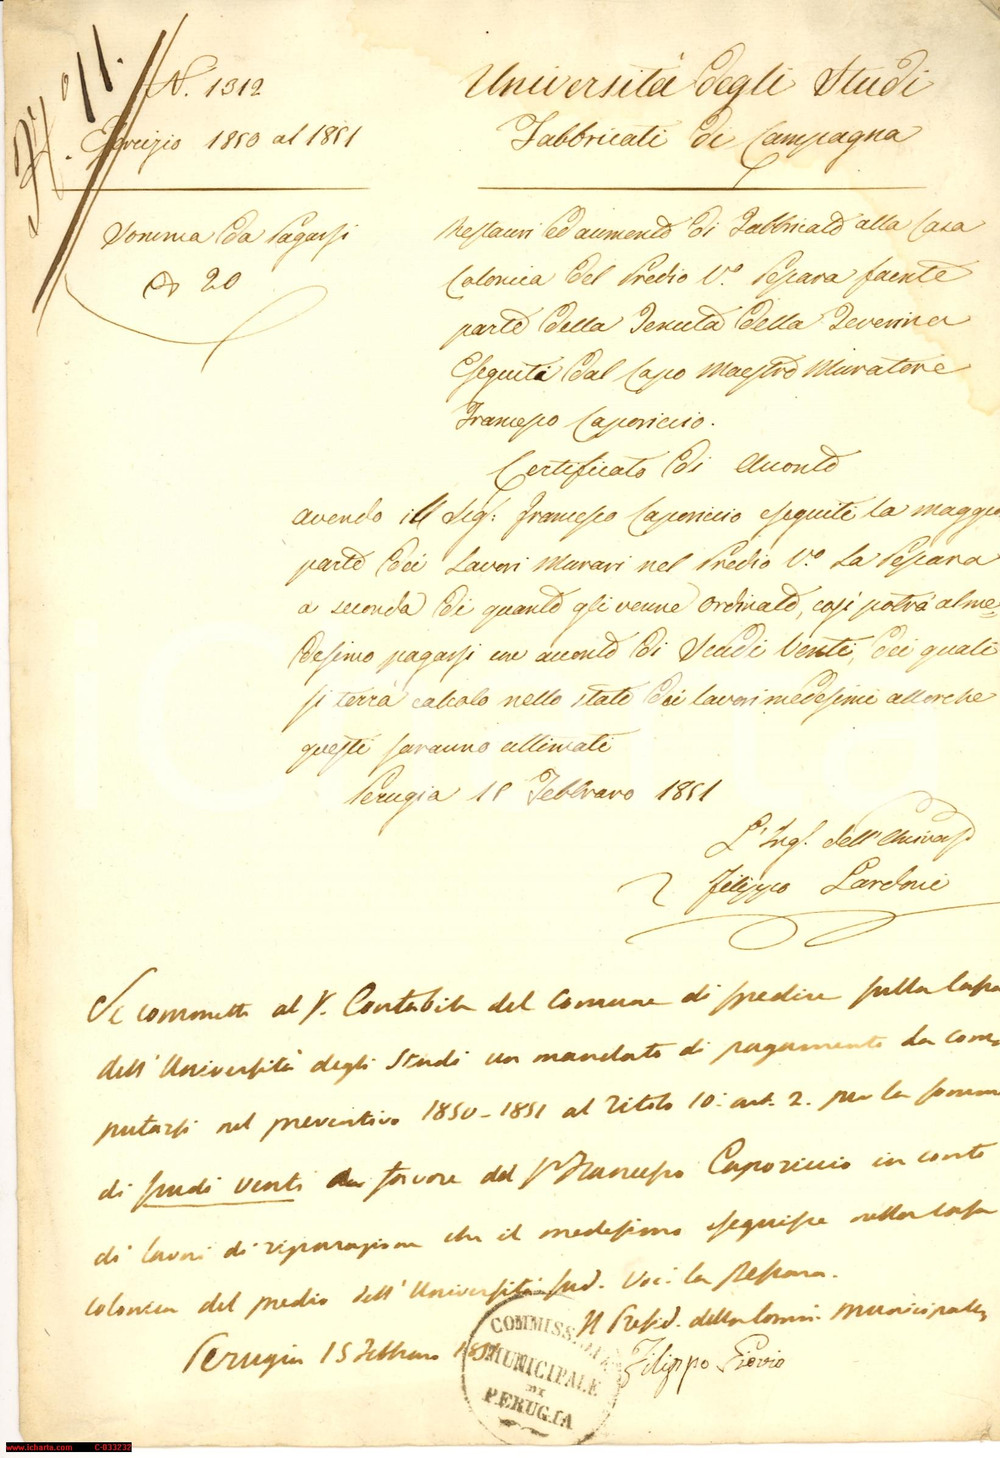 N.° 11.
N. 1312
Esercizio 1850 al 1851
Somma da Pagarsi
20
Università degli Studi
Fabbricati di Campagna
Restauri ed aumento di Fabbricato alla Casa
Colonica del Predio V.° Pescara facente
parte della Tenuta della Teverina
Eseguiti dal Capo Maestro Muratore
Francesco Caporiccio.
Certificato di Acconto
Avendo il Sig: Francesco Caporiccio eseguite la maggior
parte dei Lavori Murari nel Predio V.° La Pescara
a seconda di quanto gli venne ordinato, così potrà al me=
desimo pagarsi un acconto di Scudi Venti, dei quali
si terrà calcolo nello stato dei lavori medesimi allorche
questi saranno ultimati
Perugia 15 Febbraro 1851
L'Ing. dell'Università
Filippo Lardoni
Si commette al S. Contabile del Comune di spedire sulla Cassa
dell'Università degli Studi un mandato di pagamento da com-
putarsi nel preventivo 1850-1851 al Titolo 10: art. 2. per la somma
di scudi venti a favore del Sr Francesco Caporiccio in conto
di lavori di riparazione che il medesimo eseguisce nella casa
colonica del predio dell'Università sud. Voc: la Pescara.
Perugia 15 Febbraro 1851
Il Presid. della Comm. Municipale
Filippo
COMMISS.
MUNICIPALE
DI
PERUGIA
www.lcharta.com C-033232